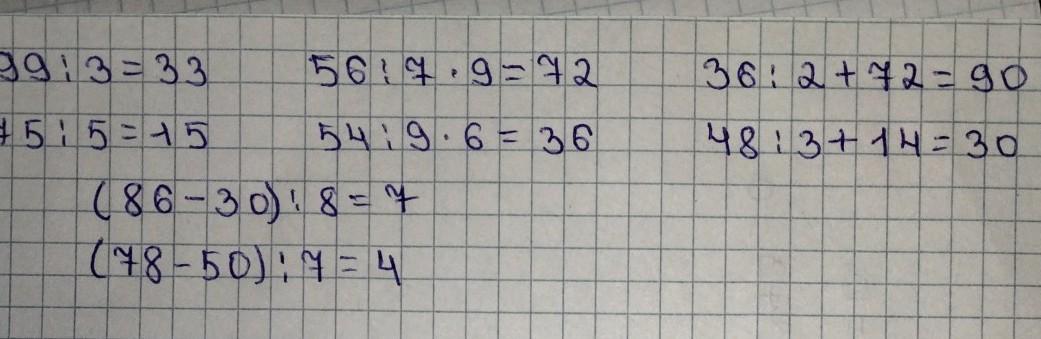 99 : 3 = 33 56 : 7 · 9 = 72 36 : 2 + 72 = 90
75 : 5 = 15 54 : 9 · 6 = 36 48 : 3 + 14 = 30
(86 - 30) : 8 = 7
(78 - 50) : 7 = 4